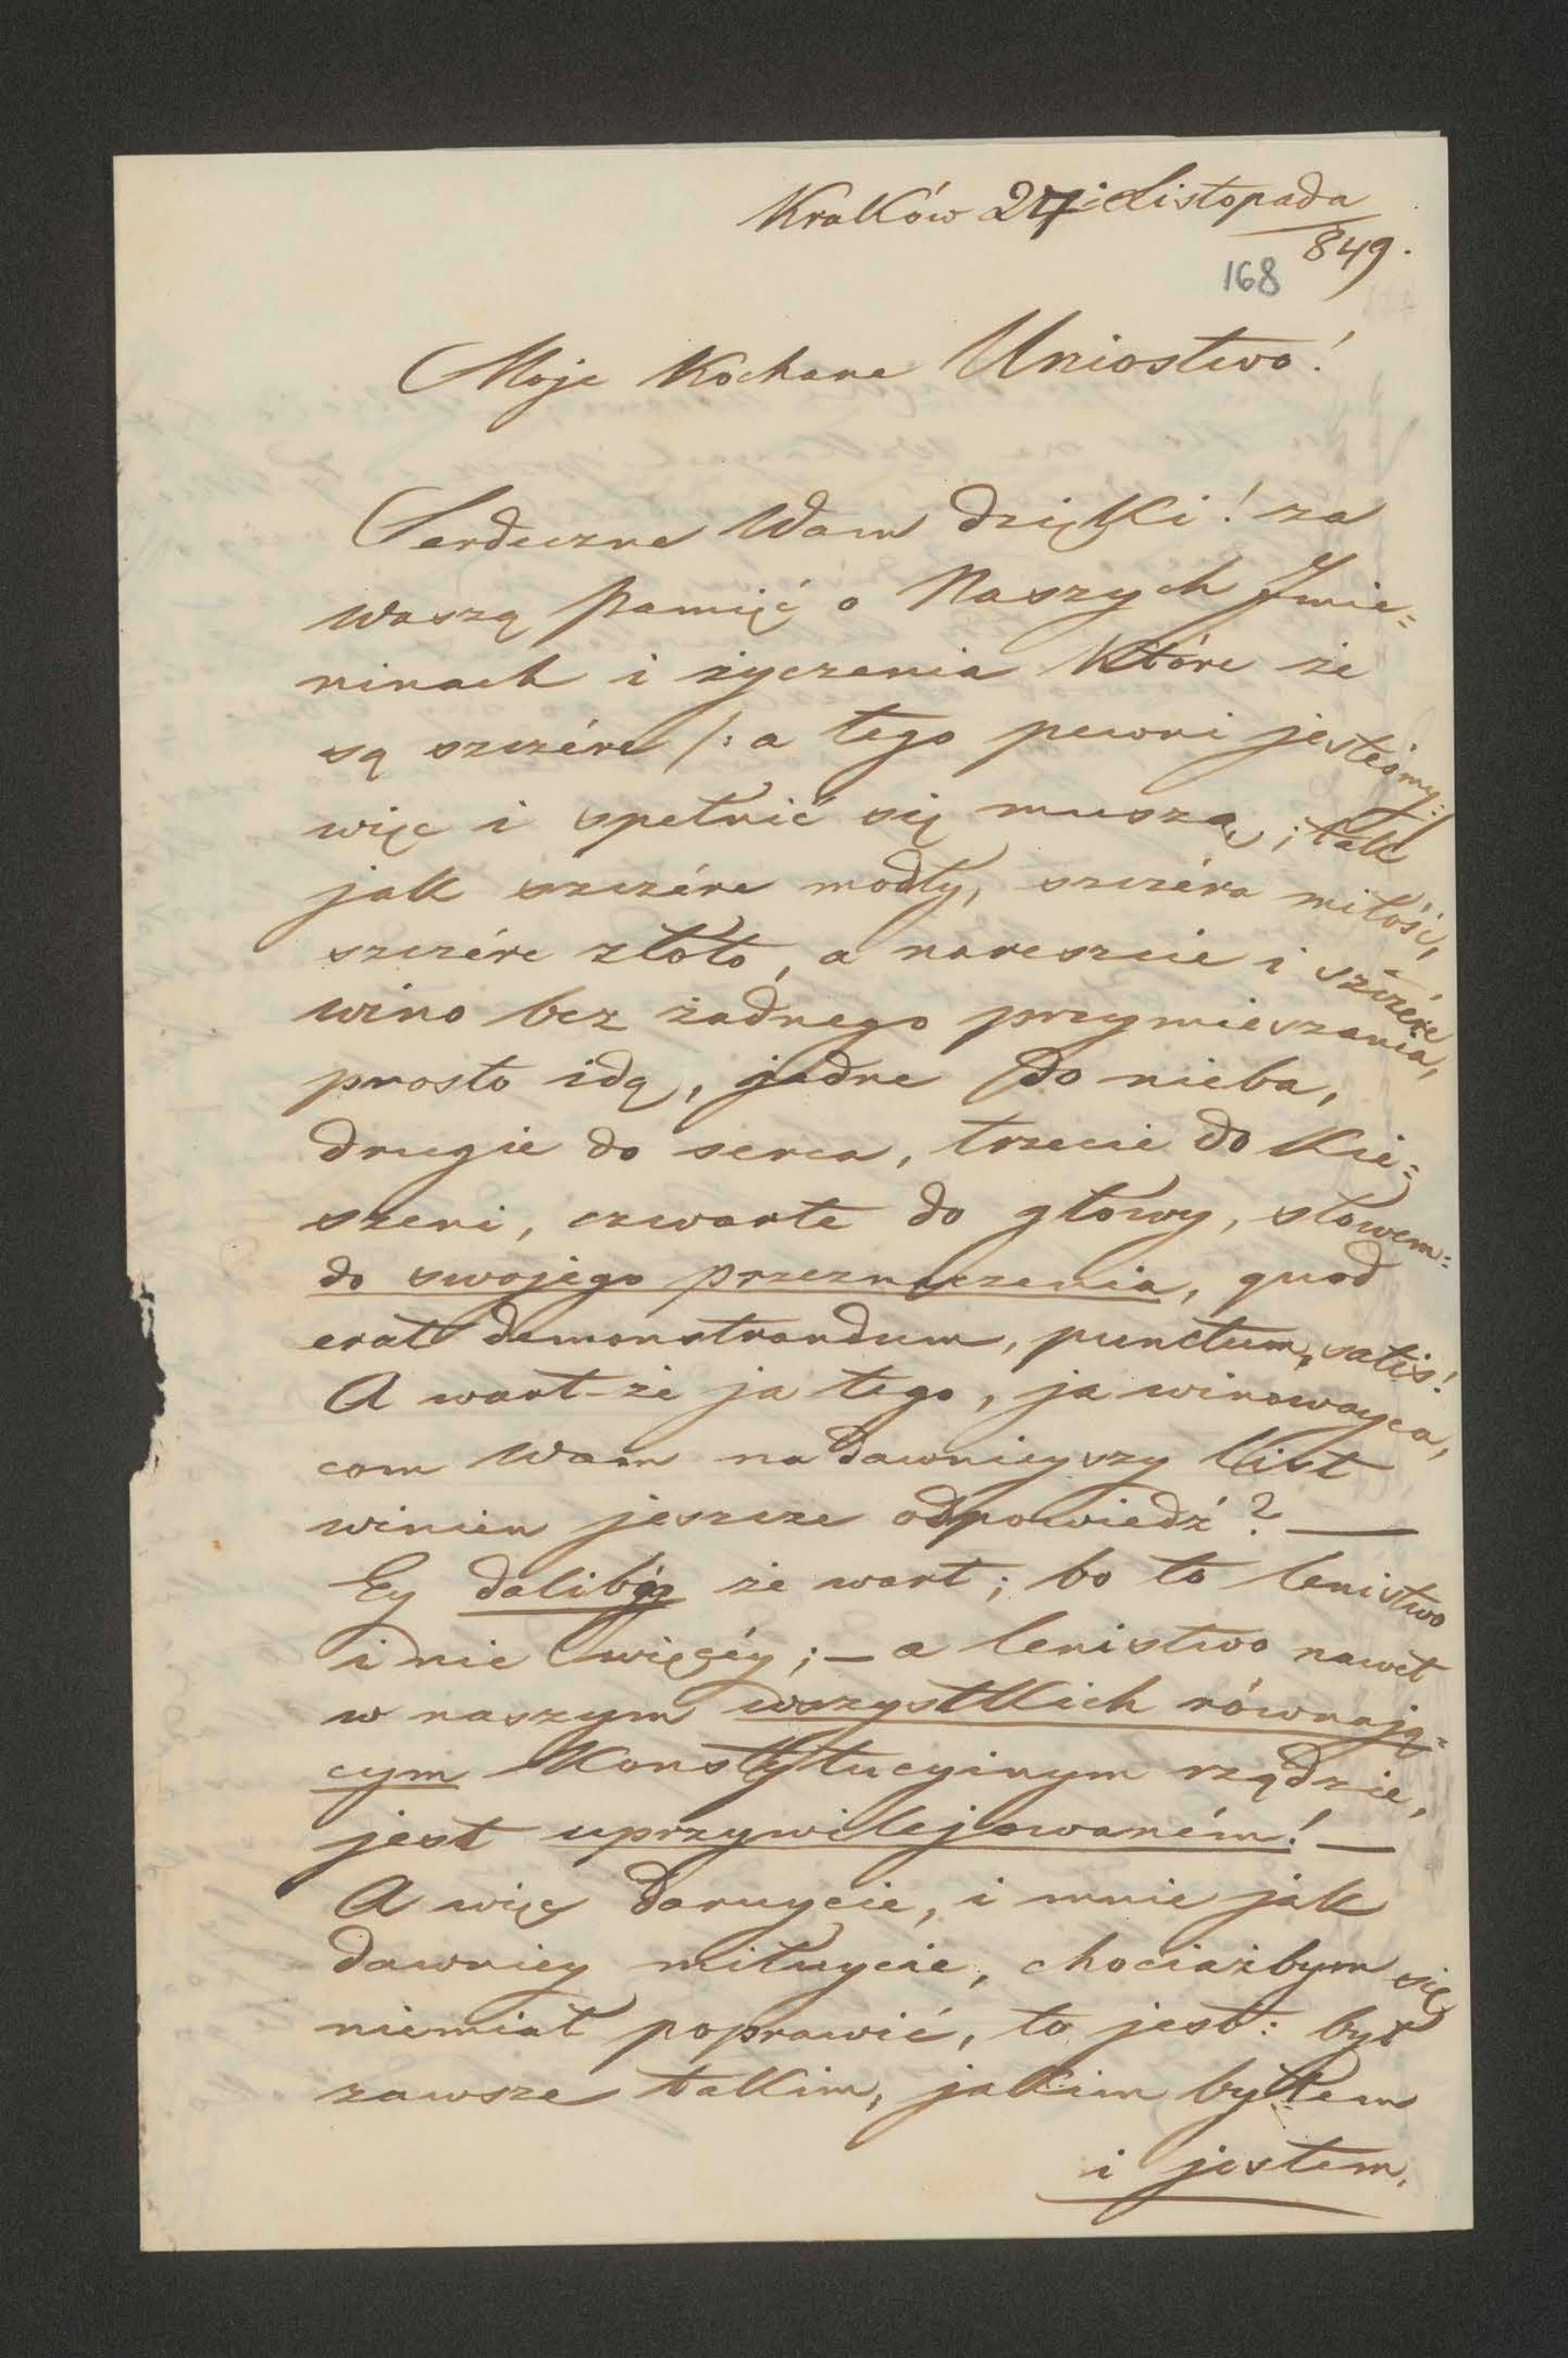 Kraków 27i Listopada
849.
168
Moje Kochane Uniostwo!
Serdeczne Wam dzięki! za
waszą pamięć o Naszych Imie=
ninach i życzenia które że
są szczére /: a tego pewni jesteśmy :/
więc i spełnić się muszą; tak
jak szczére modły, szczéra miłość,
szczére złoto, a nareszcie i szczére
wino bez żadnego przymieszania,
prosto idą, jedne do nieba,
drugie do serca, trzecie do kie=
szeni, czwarte do głowy, słowem:
do swojego przeznaczenia, quod
erat demonstrandum, punctum, satis!
A wart-że ja tego, ja winowayca,
com Wam na dawnieyszy list
winien jeszcze odpowiedź? —
Ey dalibóg że wart; bo to lenistwo
i nic więcéy; — a lenistwo nawet
w naszym wszystkich równają=
cym Konstytucyinym rządzie,
jest uprzywilejowaném! —
A więc daruycie, i mnie jak
dawniey miłuycie, chociażbym się
niemiał poprawić, to jest: był
zawsze takim, jakim byłem
i jestem.